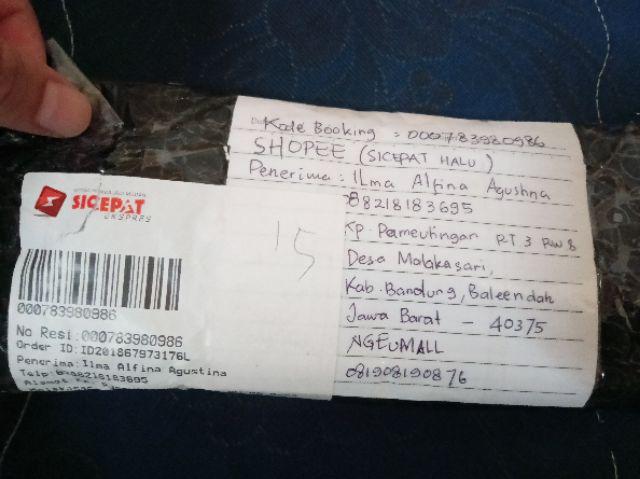 Kode Booking : 000783980986
SHOPEE (SICEPAT HALU)
Penerima : Ilma Alfina Agustina
08218183695
Kp. Pameutingan RT 3 RW 8
Desa Malakasari,
Kab. Bandung, Baleendah
Jawa Barat - 40375
NGEUMALL
081908190876
15
SICEPAT
EKSPRES
000783980986
No Resi:000783980986
Order ID:ID201867973176L
Penerima:Ilma Alfina Agustina